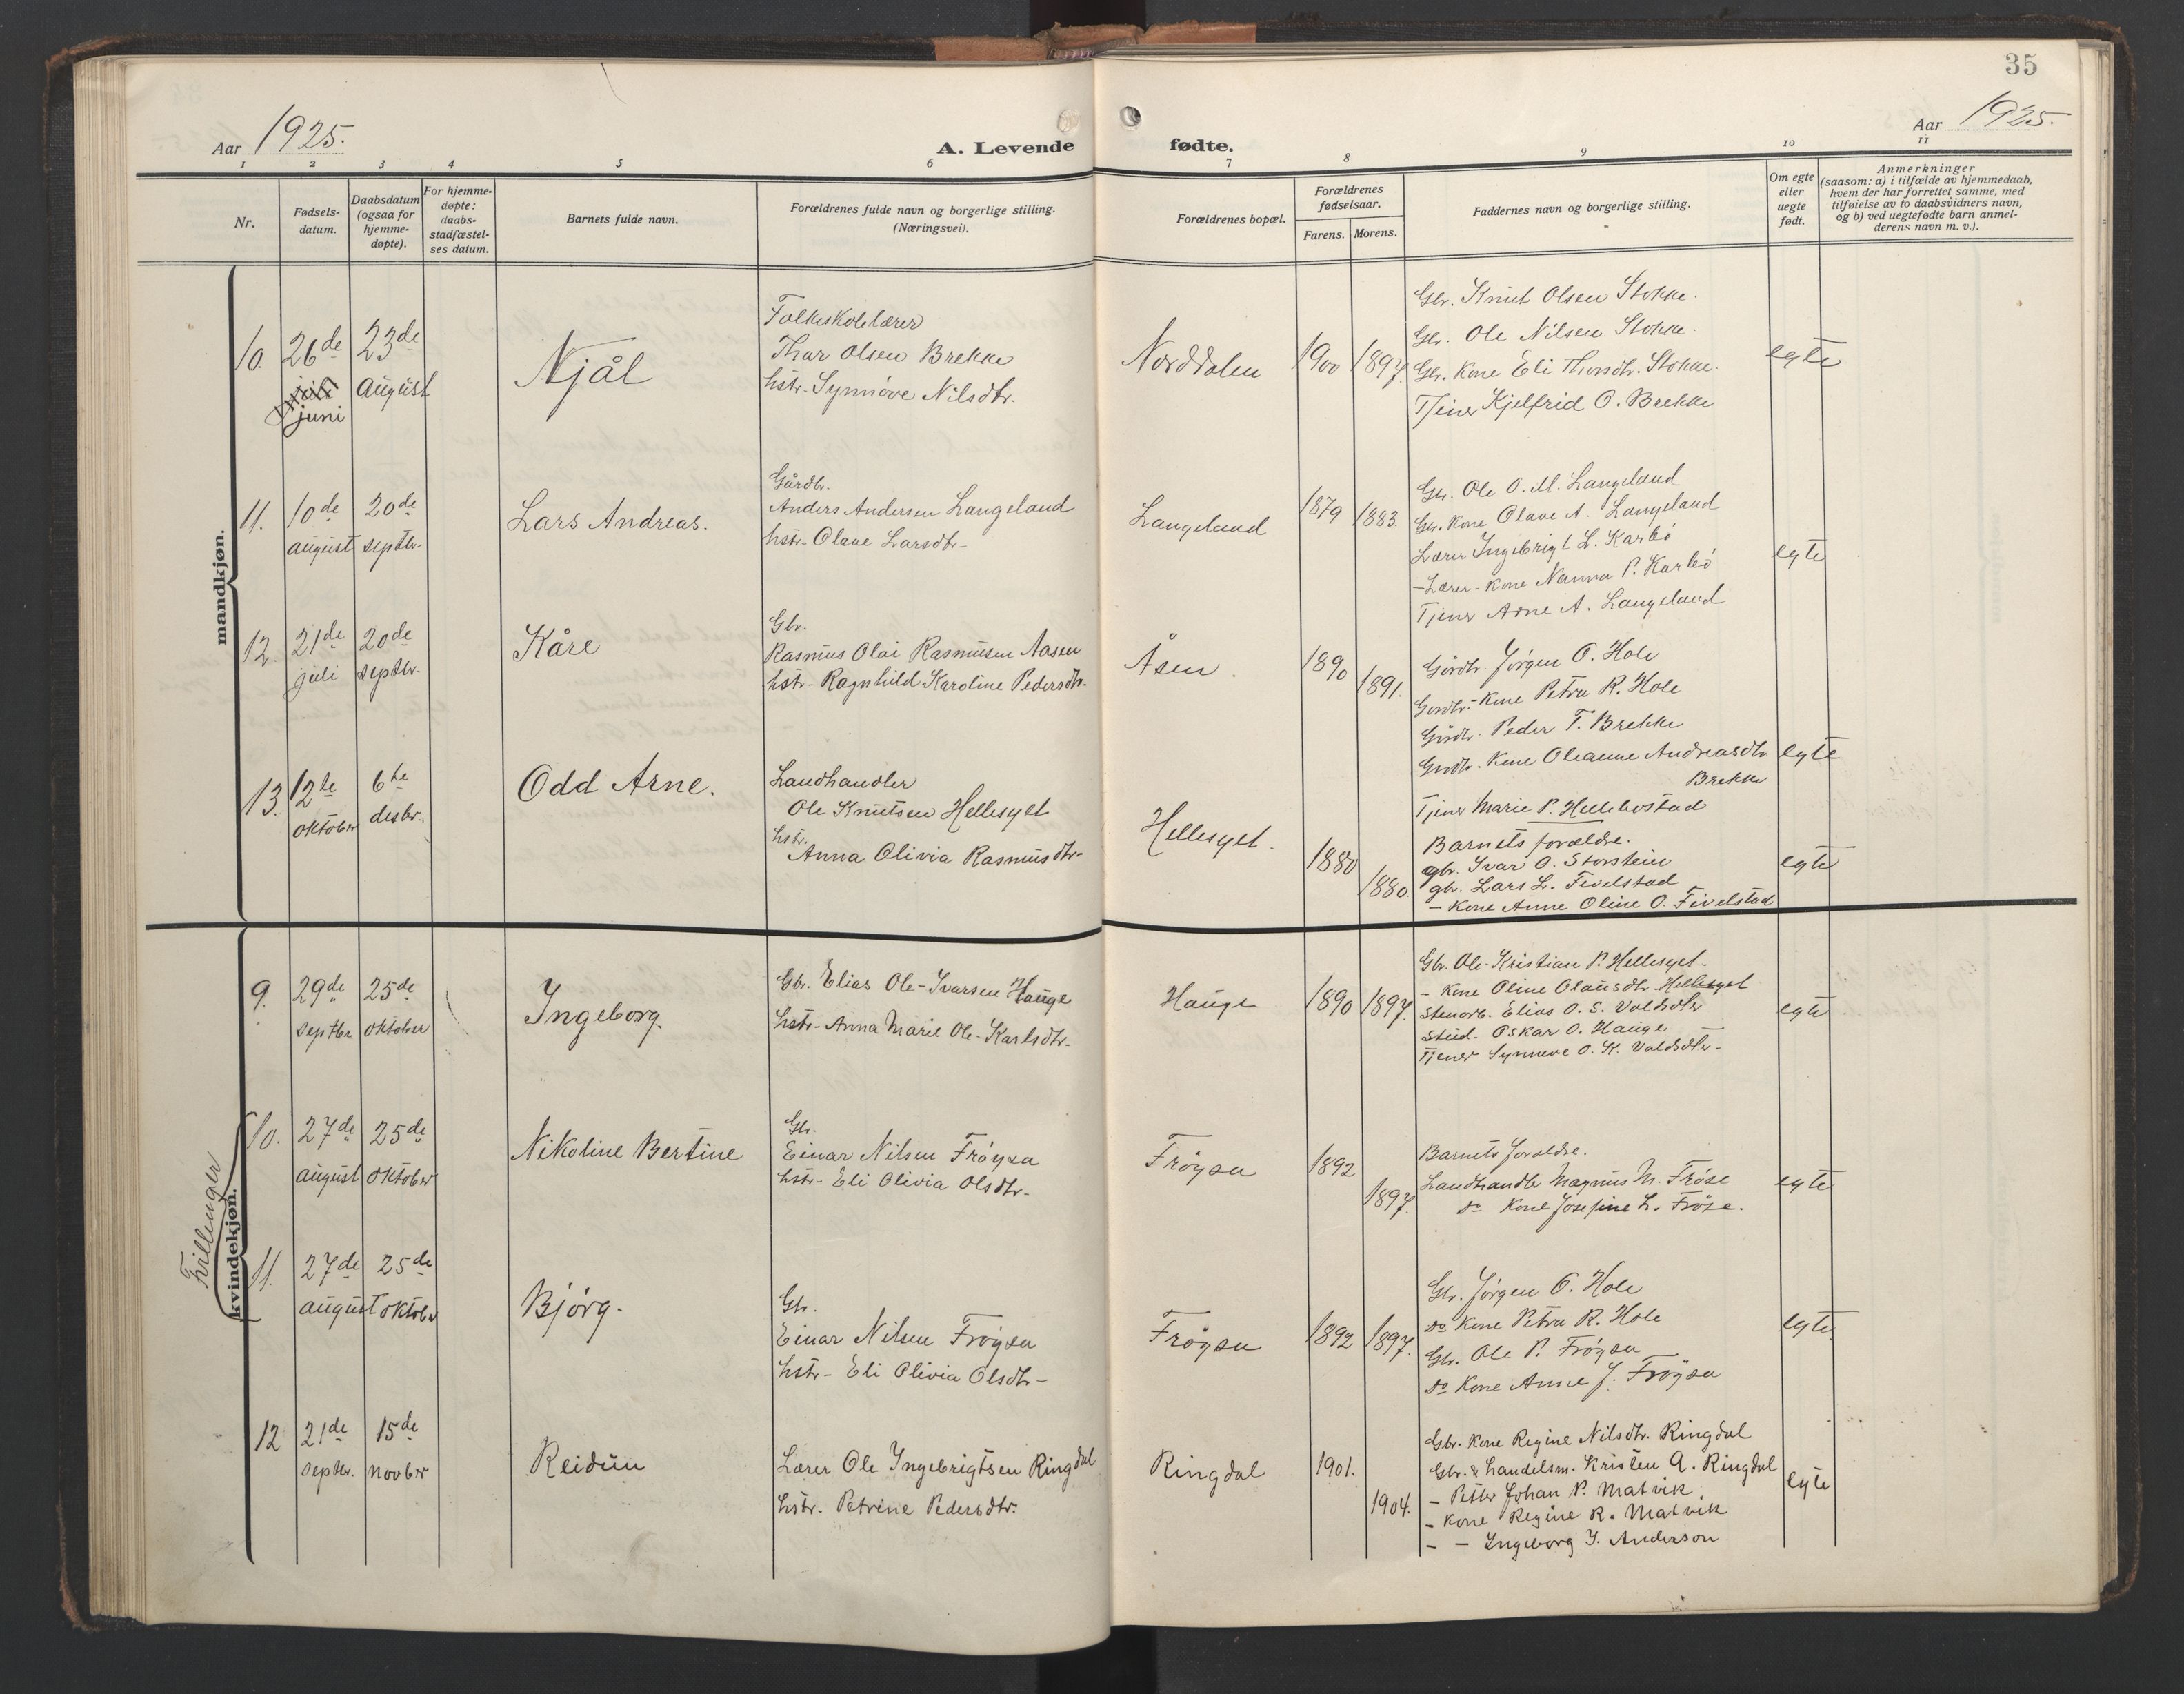 35
Aar 1925.
A. Levende
fødte.
Aar 1925.
1 2 3 4 5 6 7 8 9 10 11
Nr.
Fødsels-
datum.
Daabsdatum
(ogsaa for
hjemme-
døpte).
For hjemme-
døpte:
daabs-
stadfæstel-
ses datum.
Barnets fulde navn.
Forældrenes fulde navn og borgerlige stilling.
(Næringsvei).
Forældrenes bopæl.
Forældrenes
fødselsaar.
Farens. Morens.
Faddernes navn og borgerlige stilling.
Om egte
eller
uegte
født.
Anmerkninger
(saasom: a) i tilfælde av hjemmedaab,
hvem der har forrettet samme, med
tilføielse av to daabsvidners navn,
og b) ved uegtefødte barn anmel-
derens navn m. v.).
mandkjøn.
10. 26de
juni
23de
August
Njål
Folkeskolelærer
Thor Olsen Brekke
hstr. Synnöve Nilsdtr.
Norddalen
1900 1897.
Gbr. Knut Olsen Stokke.
Gbr. Ole Nilsen Stokke.
Gbr. Kone Eli Thorsdtr. Stokke.
Tjener Kjelfrid O. Brekke
egte
11. 10de
august
20de
septbr.
Lars Andreas.
Gårdbr.
Anders Andersen Langeland
hstr. Olave Larsdtr.
Langeland
1879 1883.
Gbr. Ole O. M. Langeland
Gbr. Kone Olave A. Langeland
Lærer Ingebrigt L. Karlsö
- Lærer-kone Nanna P. Karlsö
Tjener Arne A. Langeland
egte
12. 21de
juli
20de
septbr.
Kåre
Gbr.
Rasmus Olai Rasmusen Aasen
hstr. Ragnhild Karoline Pedersdtr.
Åsen.
1890 1891.
Gårdbr. Jörgen O. Hole
Gårdbr.-Kone Petra R. Hole
Gårdbr. Peder T. Brekke
Gårdbr. Kone Oleanne Andreasdtr
Brekke
Tjener Marie P. Hellebostad
egte
13. 12te
oktober
6te
desbr.
Odd Arne.
Landhandler
Ole Knutsen Hellesylt
hstr.
Anna Olivia Rasmusdtr.
Hellesylt.
1880 1880.
Barnets forældre.
gbr. Ivar O. Storstein
gbr. Lars L. Fivelstad
- Kone Anne Oline O. Fivelstad
egte
kvindekjøn.
9. 29de
septbr
25de
oktober
Ingeborg.
Gbr. Elias Ole-Ivarsen Hauge
hstr. Anna Marie Ole-Karlsdtr.
Hauge
1890 1897.
Gbr. Ole-Kristian P. Hellesylt.
- Kone Oline Olausdtr. Hellesylt
Stud. Oskar O. Hauge
egte
10. 27de
august
25de
oktober
Nikoline Bertine
Gbr.
Einar Nilsen Fröysa
hstr. Eli Olivia Olsdtr.
Fröysa
1892
1897.
Barnets forældre.
Landhandler Magnus M. Fröse
do Kone Josefine L. Fröse.
egte
11. 27de
august
25de
oktober
Björg.
Gbr.
Einar Nilsen Fröysa
hstr. Eli Olivia Olsdtr.
Fröysa
1892 1897.
Gbr. Jörgen O. Hole
do Kone Petra R. Hole
Gbr. Ole P. Fröysa
do Kone Anne J. Fröysa
egte
12 21de
septbr.
15de
novbr
Reidun
Lærer Ole Ingebrigtsen Ringdal
hstr. Petrine Pedersdtr.
Ringdal
1901.
1904.
Gbr. Kone Regine Nilsdtr. Ringdal
Gbr. & handelsm. Kristen A. Ringdal
- Petter Johan P. Matvik
- Kone Regine R. Matvik
- - Ingeborg I. Anderson
egte